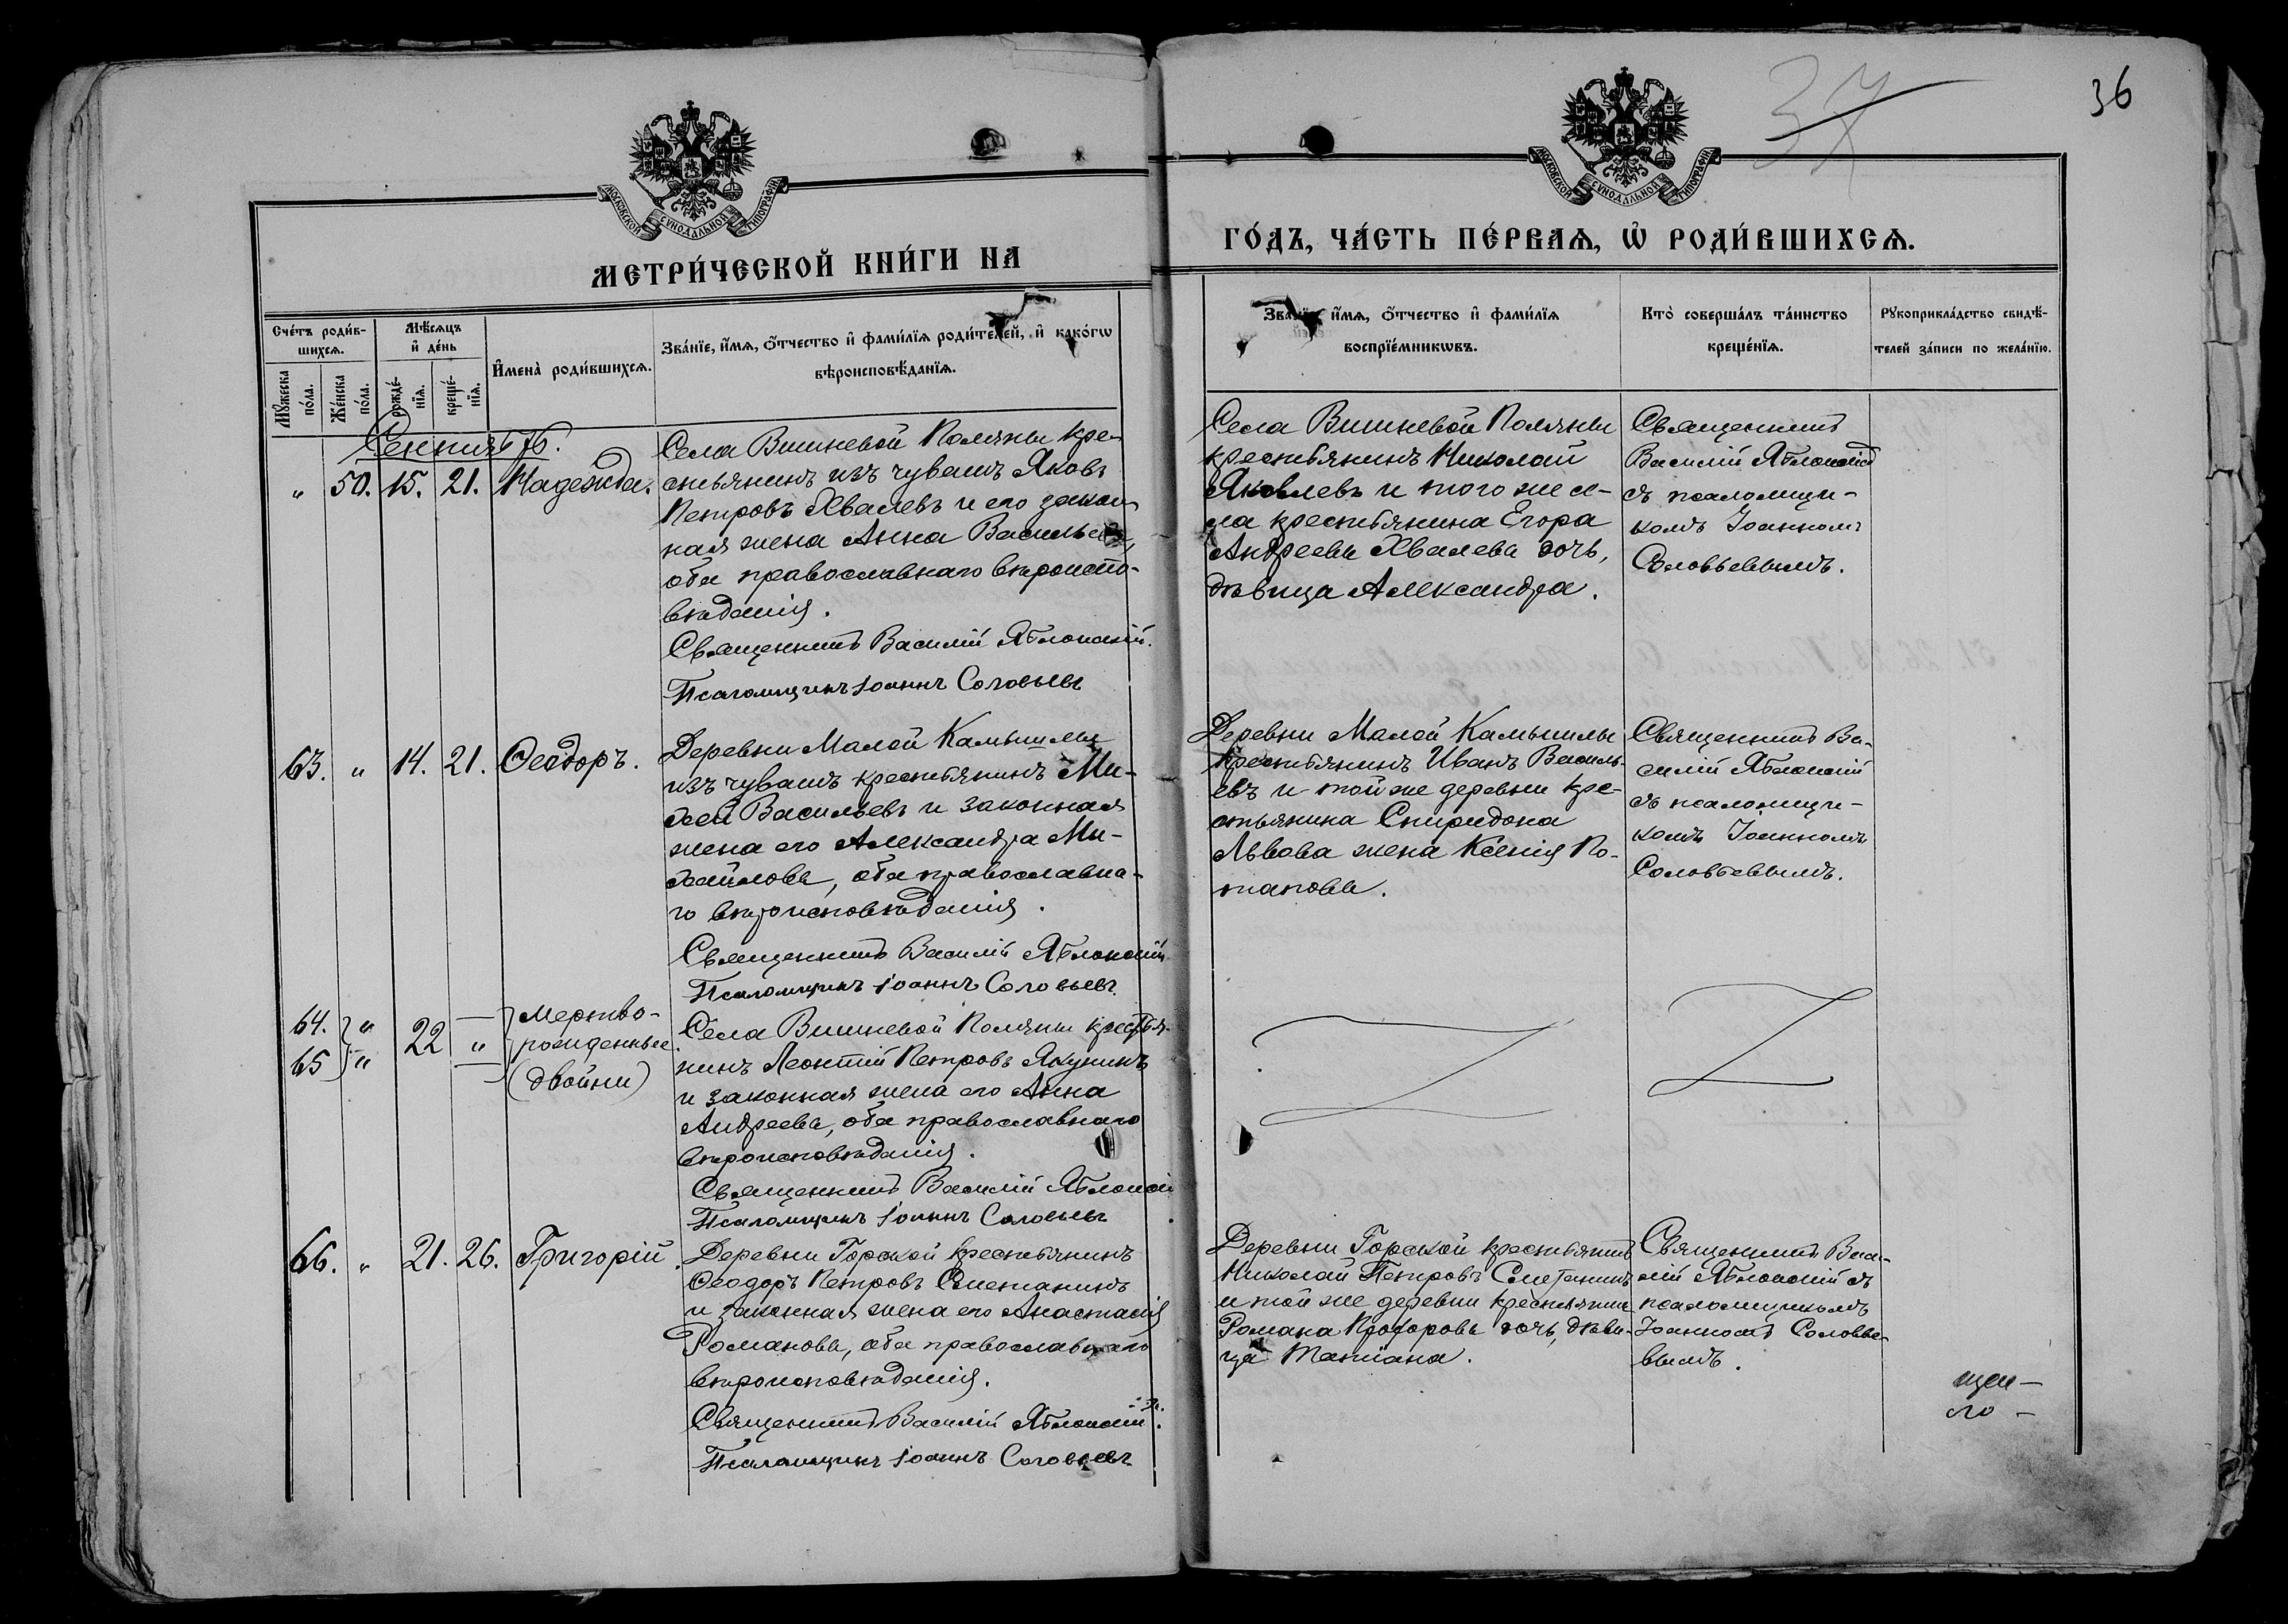 37
36
МОСКОВСКОЙ СѴНОДАЛЬНОЙ ТИПОГРАФІИ
МОСКОВСКОЙ СѴНОДАЛЬНОЙ ТИПОГРАФІИ
МЕТРИ́ЧЕСКОЙ КНИ́ГИ НА
ГО́ДЪ, ЧА́СТЬ ПЕ́РВАѦ, Ѡ҆ РОДИ́ВШИХСѦ.
Сче́тъ роди́в-
шихсѧ.
Мѣ́сѧцъ
и҆ де́нь
Мꙋ́жеска
по́ла.
Же́нска
по́ла.
рожде́-
нїѧ.
креще́-
нїѧ.
И҆мена̀ роди́вшихсѧ.
Зва́нїе, и҆́мѧ, ѻ҆́тчество и҆ фами́лїѧ роди́телей, и҆ како́гѡ
вѣроисповѣ́данїѧ.
Зва́нїе, и҆́мѧ, ѻ҆́тчество и҆ фами́лїѧ
воспрїе́мникѡвъ.
Кто̀ соверша́лъ та́инство
креще́нїѧ.
Рꙋкоприкла́дство свидѣ́-
телей за́писи по жела́нїю.
Сентябрь.
" 50. 15. 21. Надежда.
Села Вишневой Поляны кре-
стьянинъ изъ чувашъ Яковъ
Петровъ Хвалевъ и его закон-
ная жена Анна Васильева,
оба православнаго вѣроиспо-
вѣданія.
Священникъ Василій Яблонскій.
Псаломщикъ Іоаннъ Соловьевъ
Села Вишневой Поляны
крестьянинъ Николай
Яковлевъ и того же се-
ла крестьянина Егора
Андреева Хвалева дочь,
дѣвица Александра.
Священникъ
Василій Яблонскій
съ псаломщи-
комъ Іоанномъ
Соловьевымъ.
63. " 14. 21. Ѳеодоръ.
Деревни Малой Камышлы
изъ чувашъ крестьянинъ Ми-
хей Васильевъ и законная
жена его Александра Ми-
хайлова, оба православна-
го вѣроисповѣданія.
Священникъ Василій Яблонскій
Псаломщикъ Іоаннъ Соловьевъ.
Деревни Малой Камышлы
крестьянинъ Иванъ Василь-
евъ и той же деревни кре-
стьянина Спиридона
Львова жена Ксенія По-
тапова.
Священникъ Ва-
силій Яблонскій
съ псаломщи-
комъ Іоанномъ
Соловьевымъ.
64. "
65 "
22 "
Мертво-
рожденные
(двойни)
Села Вишневой Поляны крестья-
нинъ Леонтій Петровъ Якунинъ
и законная жена его Анна
Андреева, оба православнаго
вѣроисповѣданія.
Священникъ Василій Яблонскій
Псаломщикъ Іоаннъ Соловьевъ
66. " 21. 26. Григорій.
Деревни Горской крестьянинъ
Ѳеодоръ Петровъ Сметанинъ
и законная жена его Анастасія
Романова, оба православнаго
вѣроисповѣданія.
Священникъ Василій Яблонскій.
Псаломщикъ Іоаннъ Соловьевъ
Деревни Горской крестьянинъ
Николай Петровъ Сметанинъ
и той же деревни крестьянина
Романа Прохорова дочь, дѣви-
ца Татіана.
Священникъ Васи-
лій Яблонскій съ
псаломщикомъ
Іоанномъ Соловье-
вымъ.